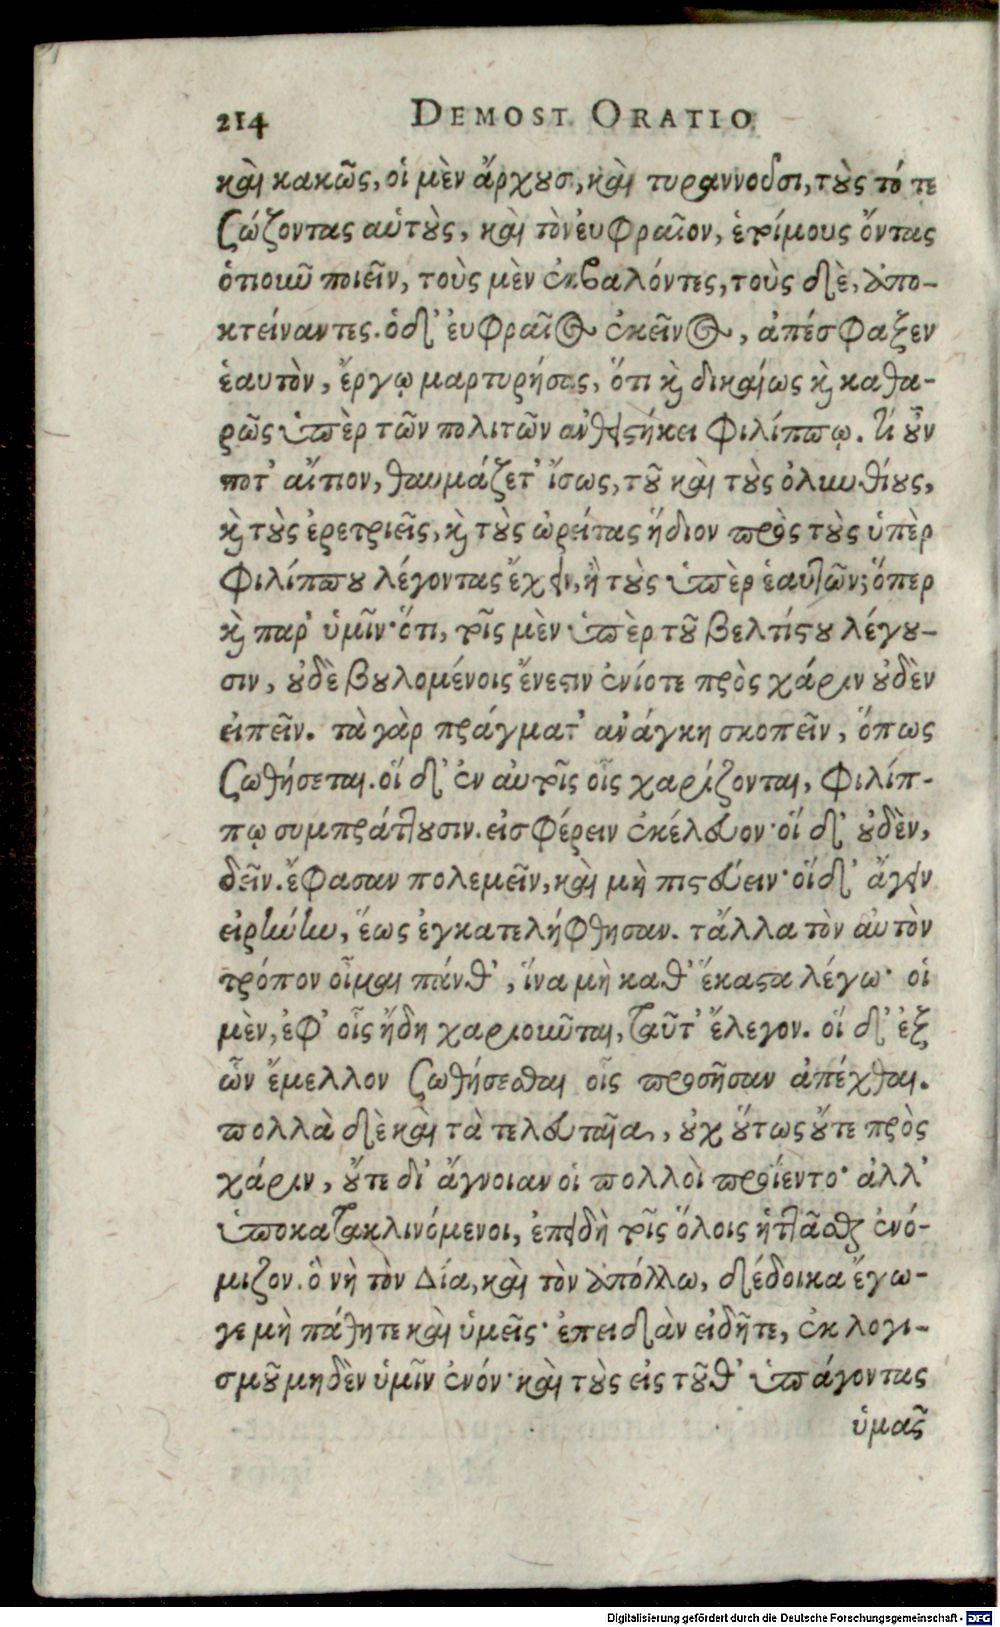 214 DEMOST. ORATIO
καὶ κακῶς, οἱ μὲν ἄρχουσι, καὶ τυραννοῦσι, τοὺς τό τε
σώζοντας αὑτοὺς, καὶ τὸν ἐυφραῖον, ἑτοίμους ὄντας
ὁτιοιοῦν ποιεῖν, τοὺς μὲν ἐκβαλόντες, τοὺς δὲ, ἀπο-
κτείναντες. ὁ δ᾽ ἐυφραῖος ἐκεῖνος, ἀπέσφαξεν
ἑαυτὸν, ἔργῳ μαρτυρήσας, ὅτι καὶ δικαίως καὶ καθα-
ρῶς ὑπὲρ τῶν πολιτῶν ἀνθειστήκει Φιλίππῳ. τί οὖν
ποτ᾽ αἴτιον, θαυμάζετ᾽ ἴσως, τοῦ καὶ τοὺς ὀλυνθίους,
καὶ τοὺς ἐρετριεῖς, καὶ τοὺς ὠρείτας ἥδιον πρὸς τοὺς ὑπὲρ
Φιλίππου λέγοντας ἔχειν, ἢ τοὺς ὑπὲρ ἑαυτῶν; ὅπερ
καὶ παρ᾽ ὑμῖν· ὅτι, τοῖς μὲν ὑπὲρ τοῦ βελτίστου λέγου-
σιν, οὐδὲ βουλομένοις ἔνεστιν ἐνίοτε πρὸς χάριν οὐδὲν
εἰπεῖν. τὰ γὰρ πράγματ᾽ ἀνάγκη σκοπεῖν, ὅπως
σωθήσεται. οἱ δ᾽ ἐν αὐτοῖς οἷς χαρίζονται, Φιλίπ-
πῳ συμπράττουσιν. εἰσφέρειν ἐκέλευον· οἱ δ᾽ οὐδὲν,
δεῖν. ἔφασαν πολεμεῖν, καὶ μὴ πιστεύειν· οἱ δ᾽ ἄγειν
εἰρήνην, ἕως ἐγκατελήφθησαν. τἄλλα τὸν αὐτὸν
τρόπον οἶμαι πάνθ᾽, ἵνα μὴ καθ᾽ ἕκαστα λέγω· οἱ
μὲν, ἐφ᾽ οἷς ἤδη χαριοῦνται, ταῦτ᾽ ἔλεγον. οἱ δ᾽ ἐξ
ὧν ἔμελλον σωθήσεσθαι οἷς προσῆσαν ἀπέχθαι.
πολλὰ δὲ καὶ τὰ τελευταῖα, οὐχ οὕτως οὔτε πρὸς
χάριν, οὔτε δι᾽ ἄγνοιαν οἱ πολλοὶ προΐεντο· ἀλλ᾽
ὑποκατακλινόμενοι, ἐπειδὴ τοῖς ὅλοις ἡττᾶσθαι ἐνό-
μιζον. ὃ νὴ τὸν Δία, καὶ τὸν ἀπόλλω, δέδοικα ἔγω-
γε μὴ πάθητε καὶ ὑμεῖς· ἐπειδὰν εἰδῆτε, ἐκ λογι-
σμοῦ μηδὲν ὑμῖν ἐνόν· καὶ τοὺς εἰς τοῦθ᾽ ὑπάγοντας
ὑμᾶς
Digitalisierung gefördert durch die Deutsche Forschungsgemeinschaft - DFG